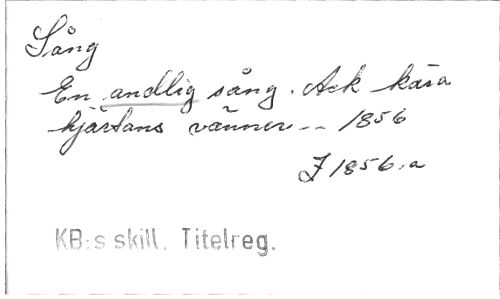 Sång
En andlig sång. Ack kära
hjärtans vänner -- 1856
J 1856.a
KB:s skill. Titelreg.